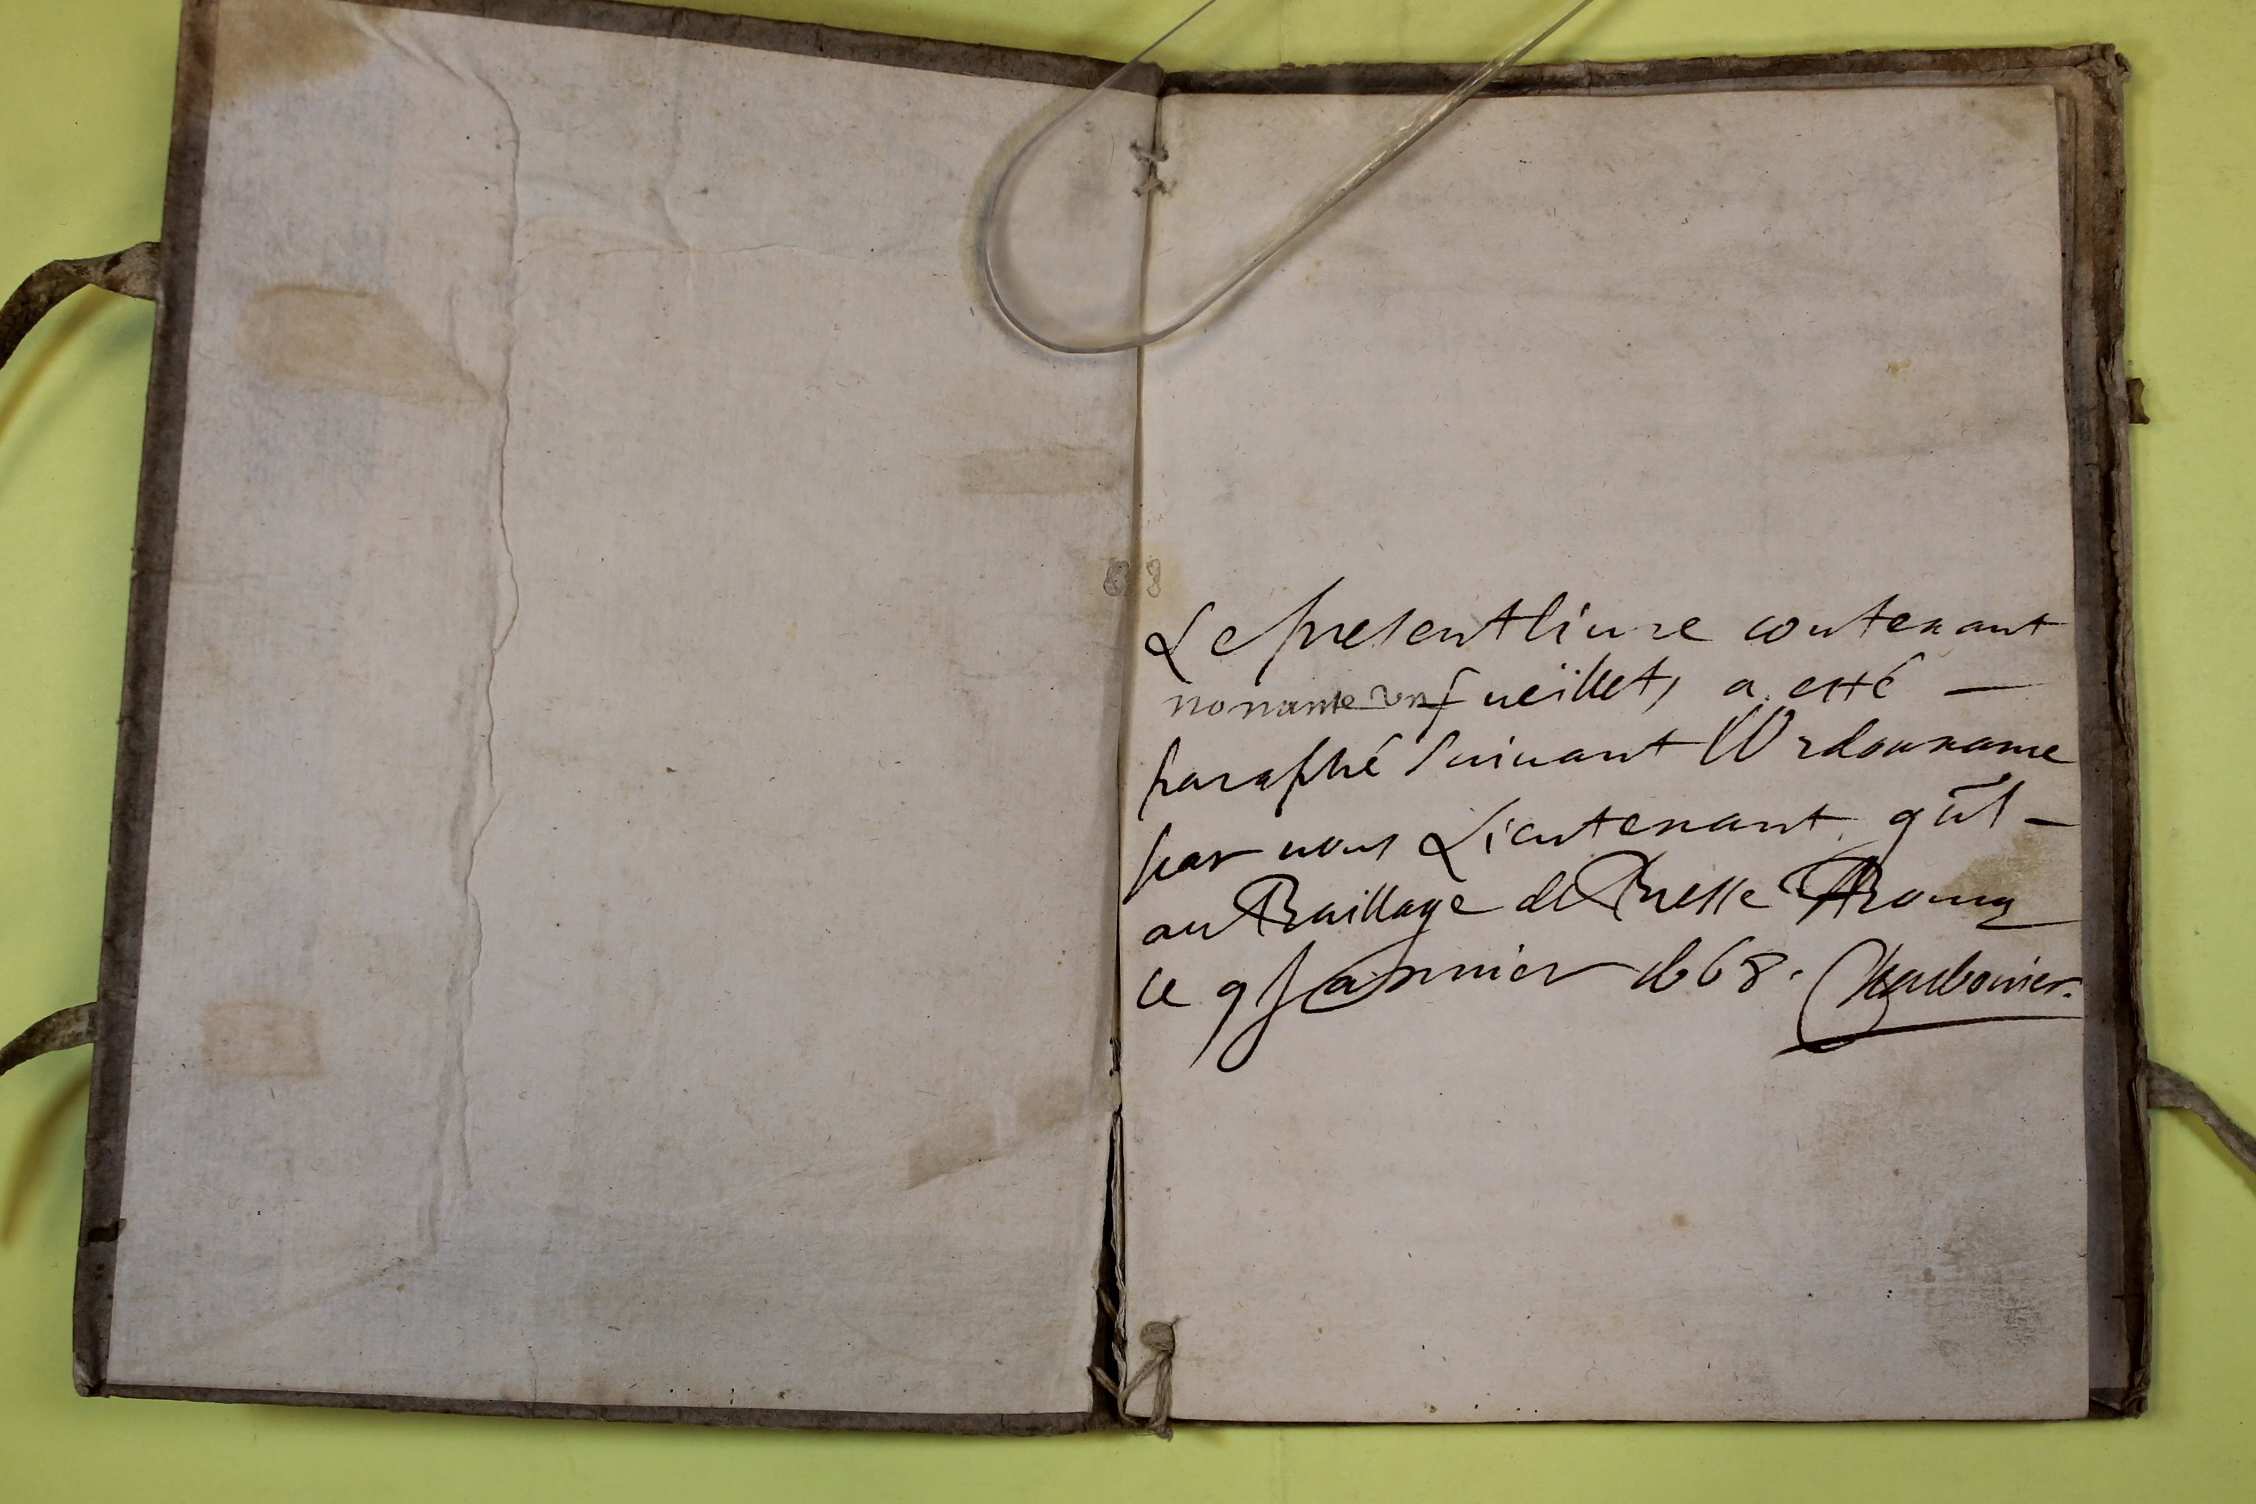 Le present liure contenant
nonante un fueïllets a esté —
paraphé suiuant l'Ordonnance
par nous Lieutenant gñl -
au Baillage de Bresse A Bourg
ce 9 Januier 1668. Charbonier.